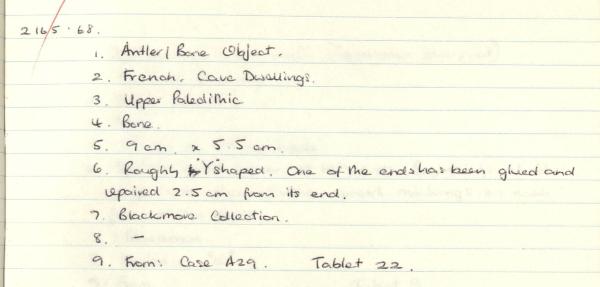 2165.68.
1. Antler/Bone Object.
2. French. Cave Dwellings.
3. Upper Paleolithic
4. Bone.
5. 9cm. x 5.5cm.
6. Roughly "Y" shaped. One of the ends has been glued and
repaired 2.5cm from its end.
7. Blackmore Collection.
8. —
9. From: Case A29. Tablet 22.